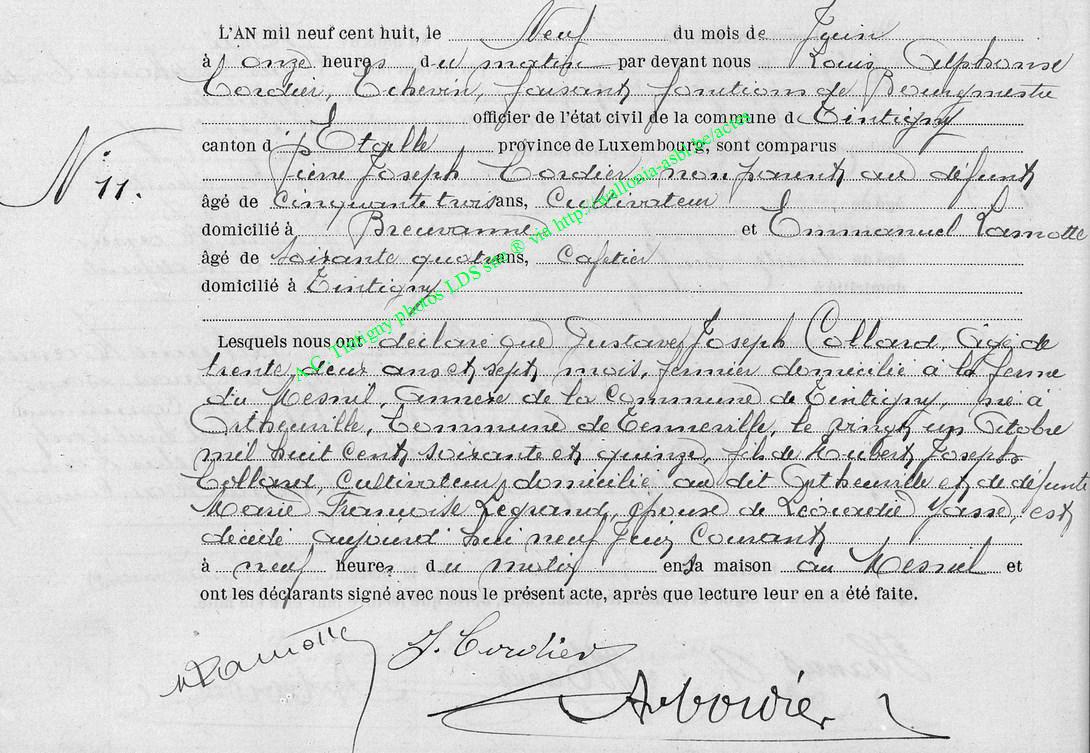 L'AN mil neuf cent huit, le Neuf du mois de Juin
à onze heures du matin par devant nous Louis Alphonse
Cordier, Echevin, faisant fonctions de Bourgmestre
officier de l'état civil de la commune de Tintigny
canton d'Etalle province de Luxembourg, sont comparus
N° 11.
Pierre Joseph Cordier, non parent au défunt
âgé de cinquante trois ans, Cultivateur
domicilié à Breuvanne et Emmanuel Lamotte
âgé de soixante quatre ans, Cafetier
domicilié à Tintigny
A.C. Tintigny photos LDS site ® via http://wallonia-asbl.be/actes
Lesquels nous ont déclaré que Gustave Joseph Collard, âgé de
trente deux ans et sept mois, fermier domicilié à la ferme
du Mesnil, annexe de la Commune de Tintigny, né à
Ortheuville, Commune de Tenneville, le vingt un Octobre
mil huit cent soixante et quinze, fils de Hubert Joseph
Collard, Cultivateur, domicilié au dit Ortheuville et de défunte
Marie Françoise Legrand, époux de Léocadie Yasse, est
décédé aujourd'hui neuf Juin Courant
à neuf heures du matin en sa maison au Mesnil et
ont les déclarants signé avec nous le présent acte, après que lecture leur en a été faite.
Lamotte J. Cordier